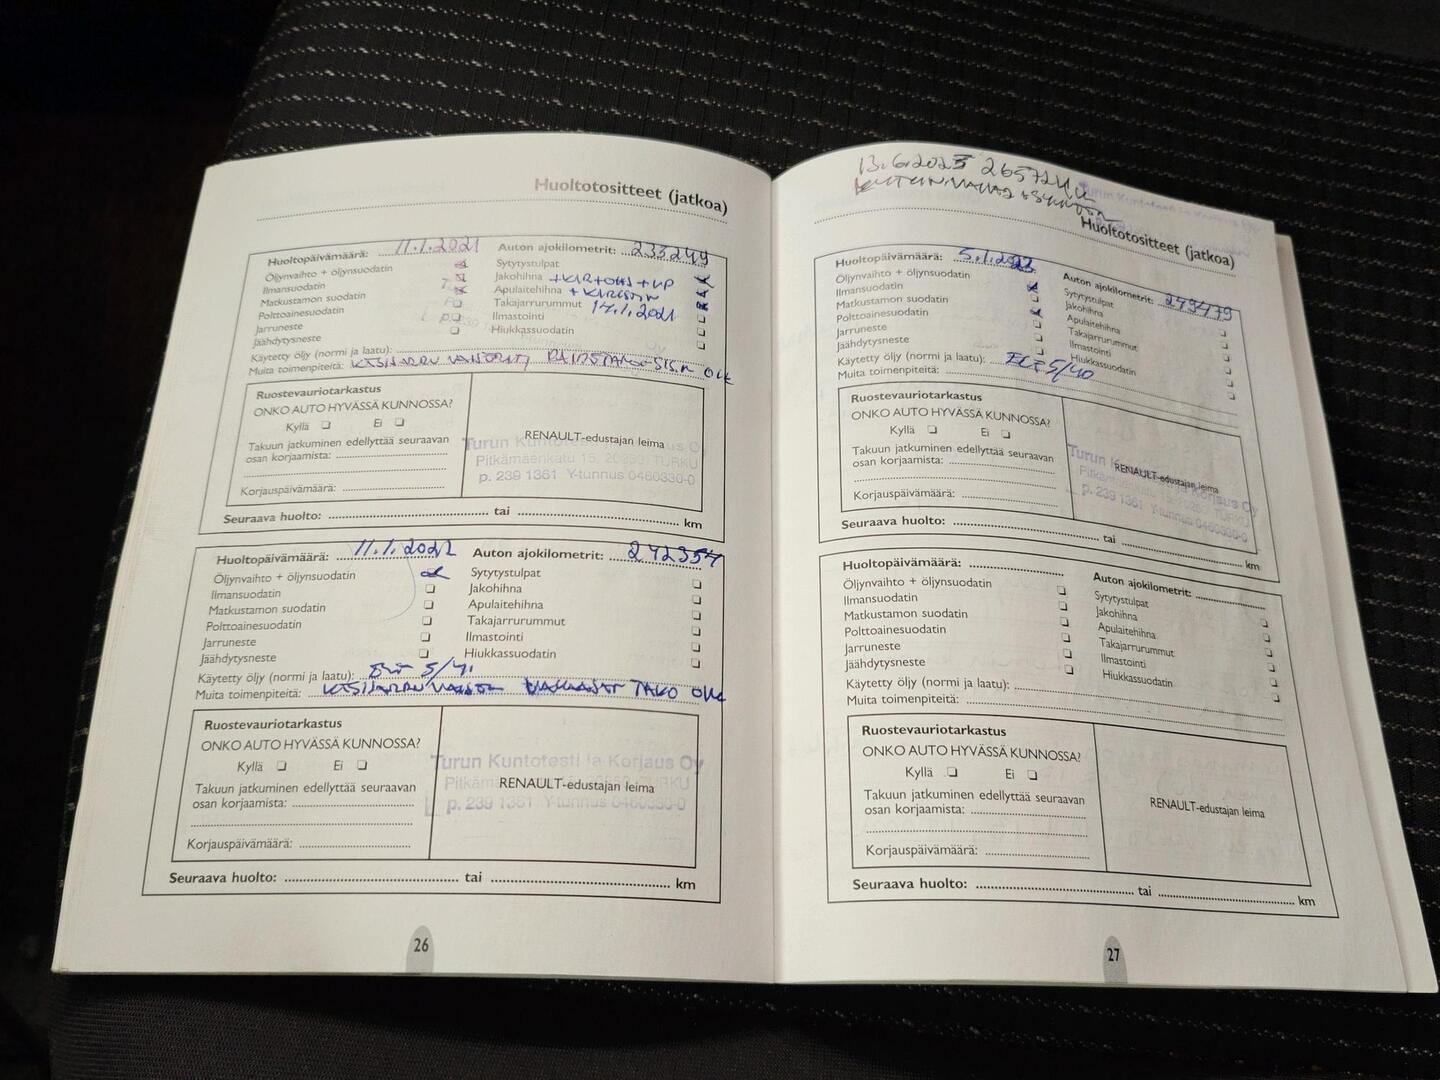 Huoltotositteet (jatkoa)
Huoltopäivämäärä: 11.1.2021 Auton ajokilometrit: 233249
Öljynvaihto + öljynsuodatin
Ilmansuodatin
Matkustamon suodatin
Polttoainesuodatin
Jarruneste
Jäähdytysneste
Sytytystulpat
Jakohihna
Apulaitehihna
Takajarrurummut 14.1.2021
Ilmastointi
Hiukkassuodatin
Käytetty öljy (normi ja laatu):
Muita toimenpiteitä:
Ruostevauriotarkastus
ONKO AUTO HYVÄSSÄ KUNNOSSA?
Kyllä Ei
Takuun jatkuminen edellyttää seuraavan
osan korjaamista:
Korjauspäivämäärä:
RENAULT-edustajan leima
Turun Kuntotesti
Pitkämäenkatu 15, 20250 TURKU
p. 239 1361 Y-tunnus 0460330-0
Seuraava huolto: tai km
Huoltopäivämäärä: 11.1.2022 Auton ajokilometrit: 242354
Öljynvaihto + öljynsuodatin
Ilmansuodatin
Matkustamon suodatin
Polttoainesuodatin
Jarruneste
Jäähdytysneste
Sytytystulpat
Jakohihna
Apulaitehihna
Takajarrurummut
Ilmastointi
Hiukkassuodatin
Käytetty öljy (normi ja laatu):
Muita toimenpiteitä:
Ruostevauriotarkastus
ONKO AUTO HYVÄSSÄ KUNNOSSA?
Kyllä Ei
Takuun jatkuminen edellyttää seuraavan
osan korjaamista:
Korjauspäivämäärä:
Turun Kuntotesti ja Korjaus Oy
RENAULT-edustajan leima
p. 239 1361 Y-tunnus 0460330-0
Seuraava huolto: tai km
26
Huoltotositteet (jatkoa)
Huoltopäivämäärä: 5.1.2023 Auton ajokilometrit: 249479
Öljynvaihto + öljynsuodatin
Ilmansuodatin
Matkustamon suodatin
Polttoainesuodatin
Jarruneste
Jäähdytysneste
Sytytystulpat
Jakohihna
Apulaitehihna
Takajarrurummut
Ilmastointi
Hiukkassuodatin
Käytetty öljy (normi ja laatu): 5/40
Muita toimenpiteitä:
Ruostevauriotarkastus
ONKO AUTO HYVÄSSÄ KUNNOSSA?
Kyllä Ei
Takuun jatkuminen edellyttää seuraavan
osan korjaamista:
Korjauspäivämäärä:
RENAULT-edustajan leima
p. 239 1361 Y-tunnus 0460330-0
Seuraava huolto: tai km
Huoltopäivämäärä: Auton ajokilometrit:
Öljynvaihto + öljynsuodatin
Ilmansuodatin
Matkustamon suodatin
Polttoainesuodatin
Jarruneste
Jäähdytysneste
Sytytystulpat
Jakohihna
Apulaitehihna
Takajarrurummut
Ilmastointi
Hiukkassuodatin
Käytetty öljy (normi ja laatu):
Muita toimenpiteitä:
Ruostevauriotarkastus
ONKO AUTO HYVÄSSÄ KUNNOSSA?
Kyllä Ei
Takuun jatkuminen edellyttää seuraavan
osan korjaamista:
Korjauspäivämäärä:
RENAULT-edustajan leima
Seuraava huolto: tai km
27